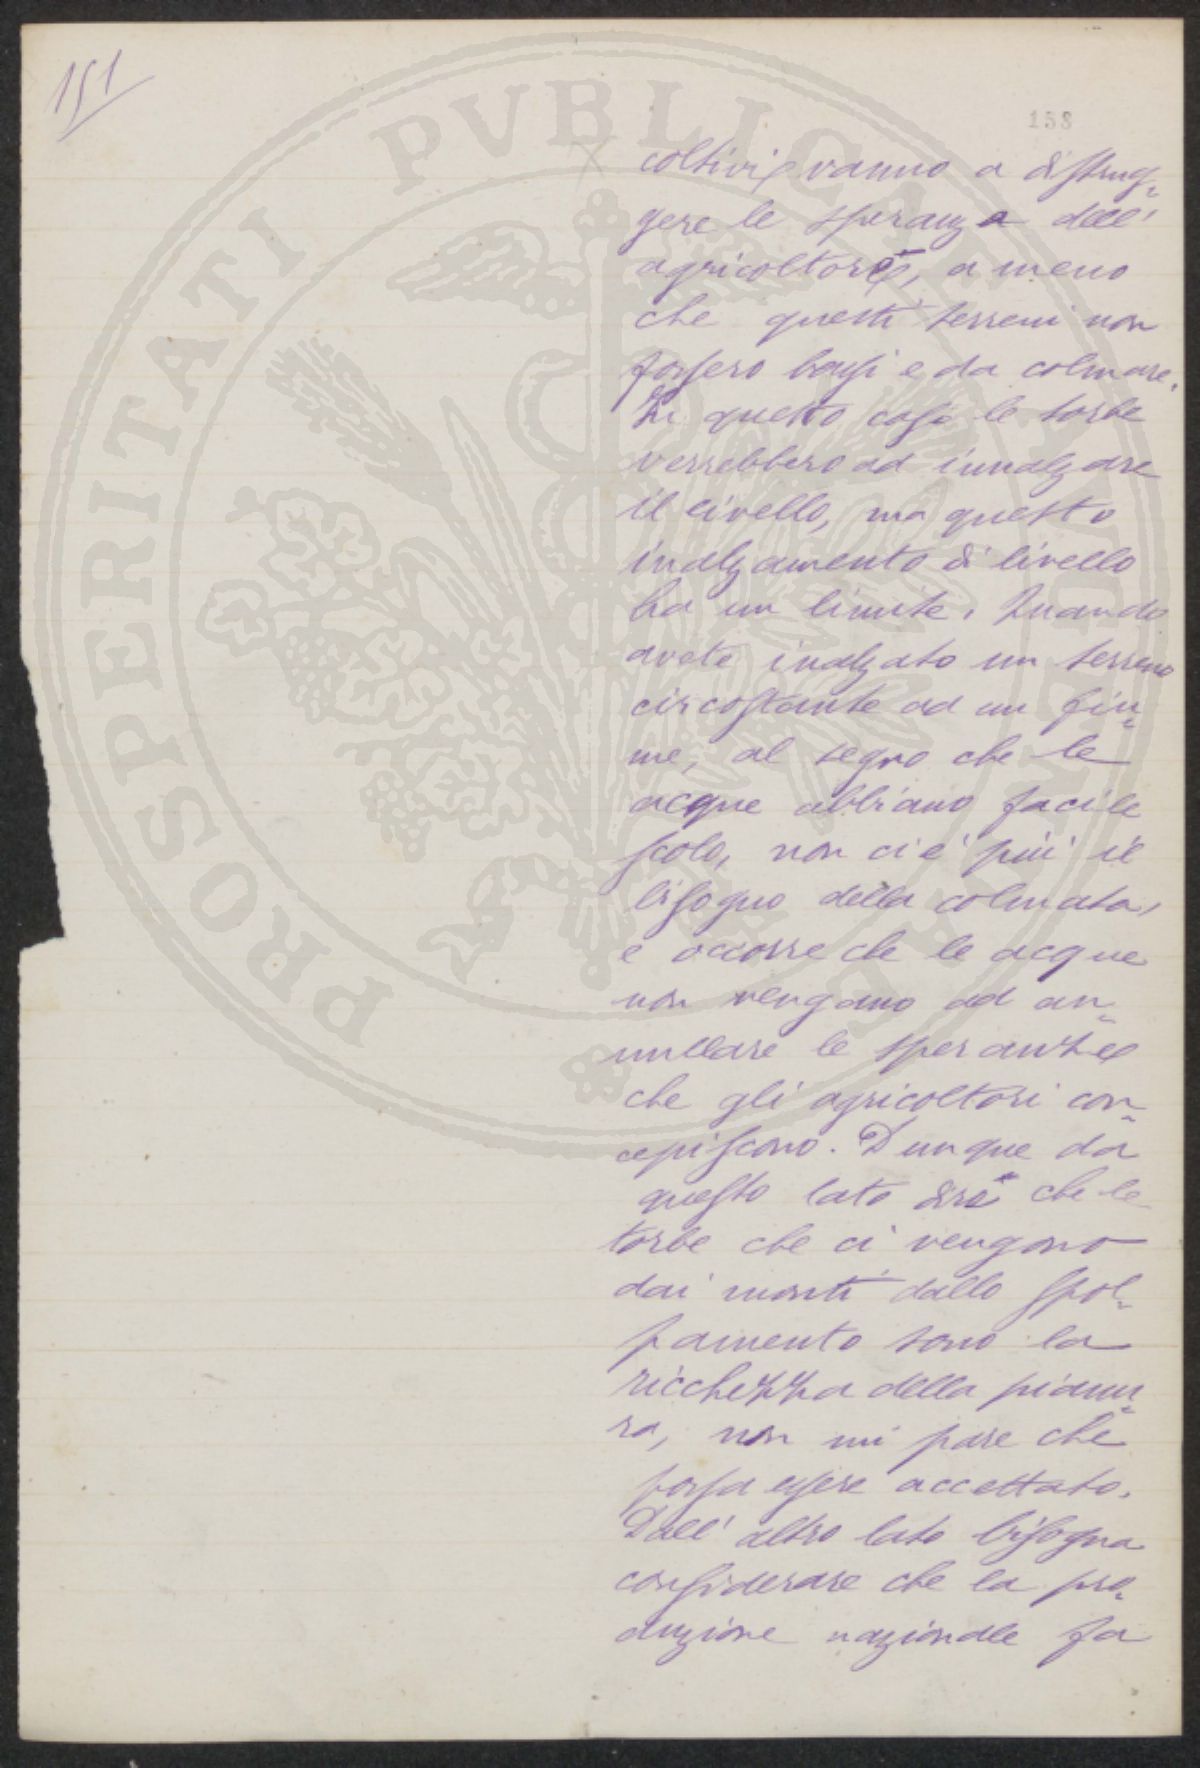 151
158
coltivi vanno a distrug-
gere le speranza dell'
agricoltore, a meno
che questi terreni non
fossero bassi e da colmare.
In questo caso le torbe
verrebbero ad innalzare
il livello, ma questo
inalzamento di livello
ha un limite. Quando
avete inalzato un terreno
circostante ad un fiu-
me, al segno che le
acque abbiano facile
scolo, non ci è più il
bisogno della colmata,
e occorre che le acque
non vengano ad an-
nullare le speranze
che gli agricoltori con-
cepiscono. Dunque da
questo lato dirò che le
torbe che ci vengono
dai monti dallo spol-
pamento sono la
ricchezza della pianu-
ra, non mi pare che
possa essere accettato.
Dall'altro lato bisogna
considerare che la pro-
duzione nazionale fa
PROSPERITATI PVBLICAE